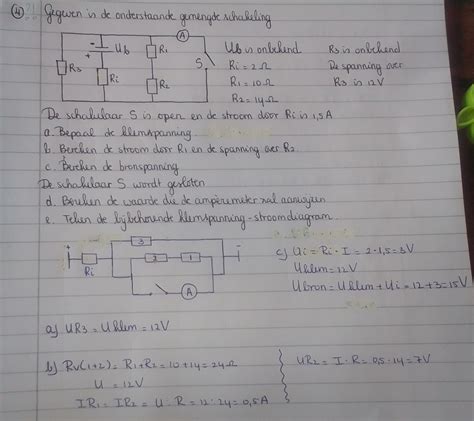 4) Gegeven is de onderstaande gemengde schakeling
A
Ub
R1
S
R3
Ri
R2
Ub is onbekend
R3 is onbekend
Ri = 2Ω
De spanning over
R1 = 10Ω
R3 is 12V
R2 = 14Ω
De schakelaar S is open en de stroom door Ri is 1,5A
a. Bepaal de klemspanning
b. Bereken de stroom door R1 en de spanning over R2
c. Bereken de bronspanning
De schakelaar S wordt gesloten
d. Bereken de waarde die de ampèremeter zal aanwijzen
e. Teken de bijbehorende klemspanning-stroomdiagram
+
Ri
3
2
1
A
-
c) Ui = Ri · I = 2 · 1,5 = 3V
Uklem = 12V
Ubron = Uklem + Ui = 12 + 3 = 15V
a) UR3 = Uklem = 12V
b) Rv(1+2) = R1 + R2 = 10 + 14 = 24Ω
U = 12V
IR1 = IR2 = U · R = 12 : 24 = 0,5A
UR2 = I · R = 0,5 · 14 = 7V